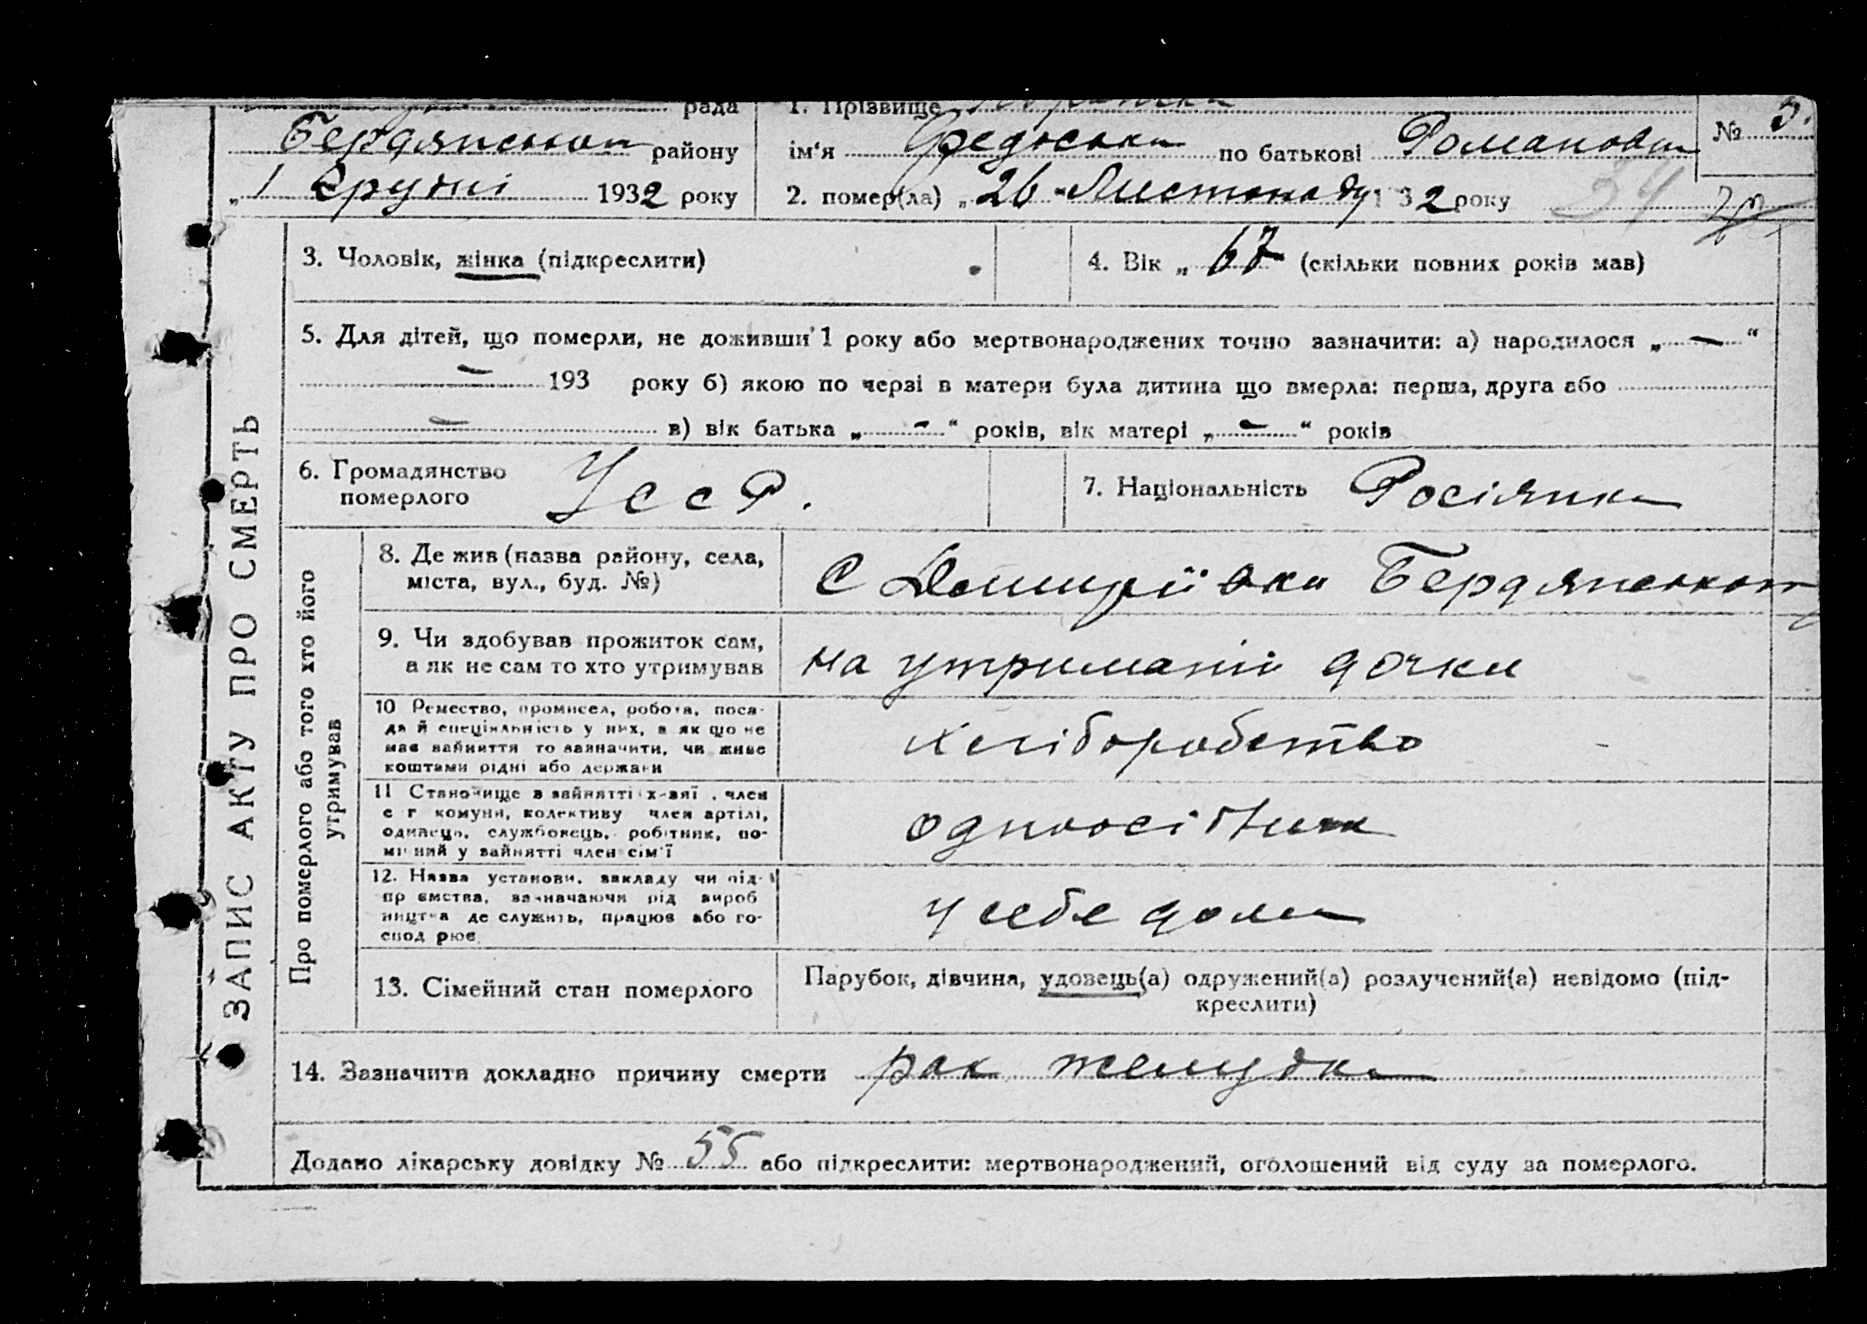 рада 1. Прізвище
Бердянського району ім'я Федоська по батькові Романовна № 5.
„ 1 Грудні 1932 року 2. помер(ла) „ 26 " Листопаду 1 32 року 34
3. Чоловік, жінка (підкреслити) 4. Вік „ 67 (скільки повних років мав)
5. Для дітей, що померли, не доживши 1 року або мертвонароджених точно зазначити: а) народилося „ — “
— 193 року б) якою по черзі в матери була дитина що вмерла: перша, друга або
— в) вік батька „ - “ років, вік матері „ - “ років
6. Громадянство
померлого
УССР.
7. Національність Росіянка
ЗАПИС АКТУ ПРО СМЕРТЬ
Про померлого або того хто його
утримував
8. Де жив (назва району, села,
міста, вул., буд. №)
С Дмитріївка Бердянського
9. Чи здобував прожиток сам,
а як не сам то хто утримував
на утриманні дочки
10 Ремество, промисел, робота, поса-
да й спеціяльність у них, а як що не
має зайняття то зазначити, чи живе
коштами рідні або держави
хліборобство
11 Становище в зайнятті х-вяї , член
с г комуни, колективу член артілі,
одинець, службовець, робітник, по-
мічний у зайнятті член сім'ї
одноосібник
12. Назва установи, закладу чи під-
приємства, зазначаючи рід вироб
ництва де служить, працює або го-
спод рює
у себе дома
13. Сімейний стан померлого
Парубок, дівчина, удовець(а) одружений(а) розлучений(а) невідомо (під-
креслити)
14. Зазначити докладно причину смерти рак желудка
Додано лікарську довідку № 55 або підкреслити: мертвонароджений, оголошений від суду за померлого.